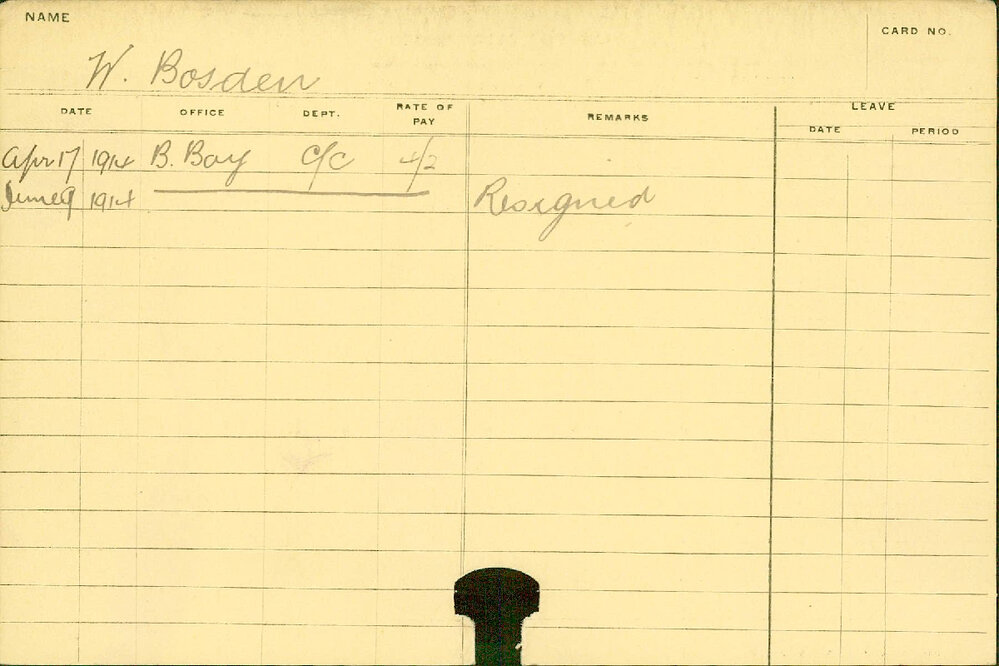 NAME
CARD NO.
W. Bosden
DATE OFFICE DEPT. RATE OF PAY REMARKS LEAVE
DATE PERIOD
Apr 17 1914 B. Bay C/C 4/2
June 9 1914 Resigned